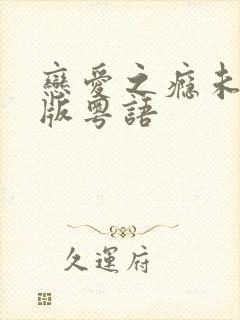 戀愛之癮未
版粵語
久運府